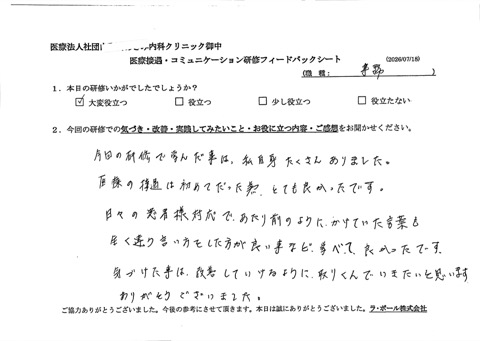 医療法人社団 内科クリニック御中
医療接遇・コミュニケーション研修フィードバックシート
(2026/07/18)
(職種: 事務 )
1．本日の研修いかがでしたでしょうか？
☑ 大変役立つ □ 役立つ □ 少し役立つ □ 役立たない
2．今回の研修での気づき・改善・実践してみたいこと・お役に立つ内容・ご感想をお聞かせください。
今日の研修で学んだ事は、私自身たくさんありました。
の接遇は初めてだった為、とても良かったです。
日々の患者様対応で、あたり前のように、かけていた言葉も
違う言い方をした方が良い事など、すべて、良かったです。
気づけた事は、改善していけるように、取りくんでいきたいと思います
ありがとうございました。
ご協力ありがとうございました。今後の参考にさせて頂きます。本日は誠にありがとうございました。ラ・ポール株式会社